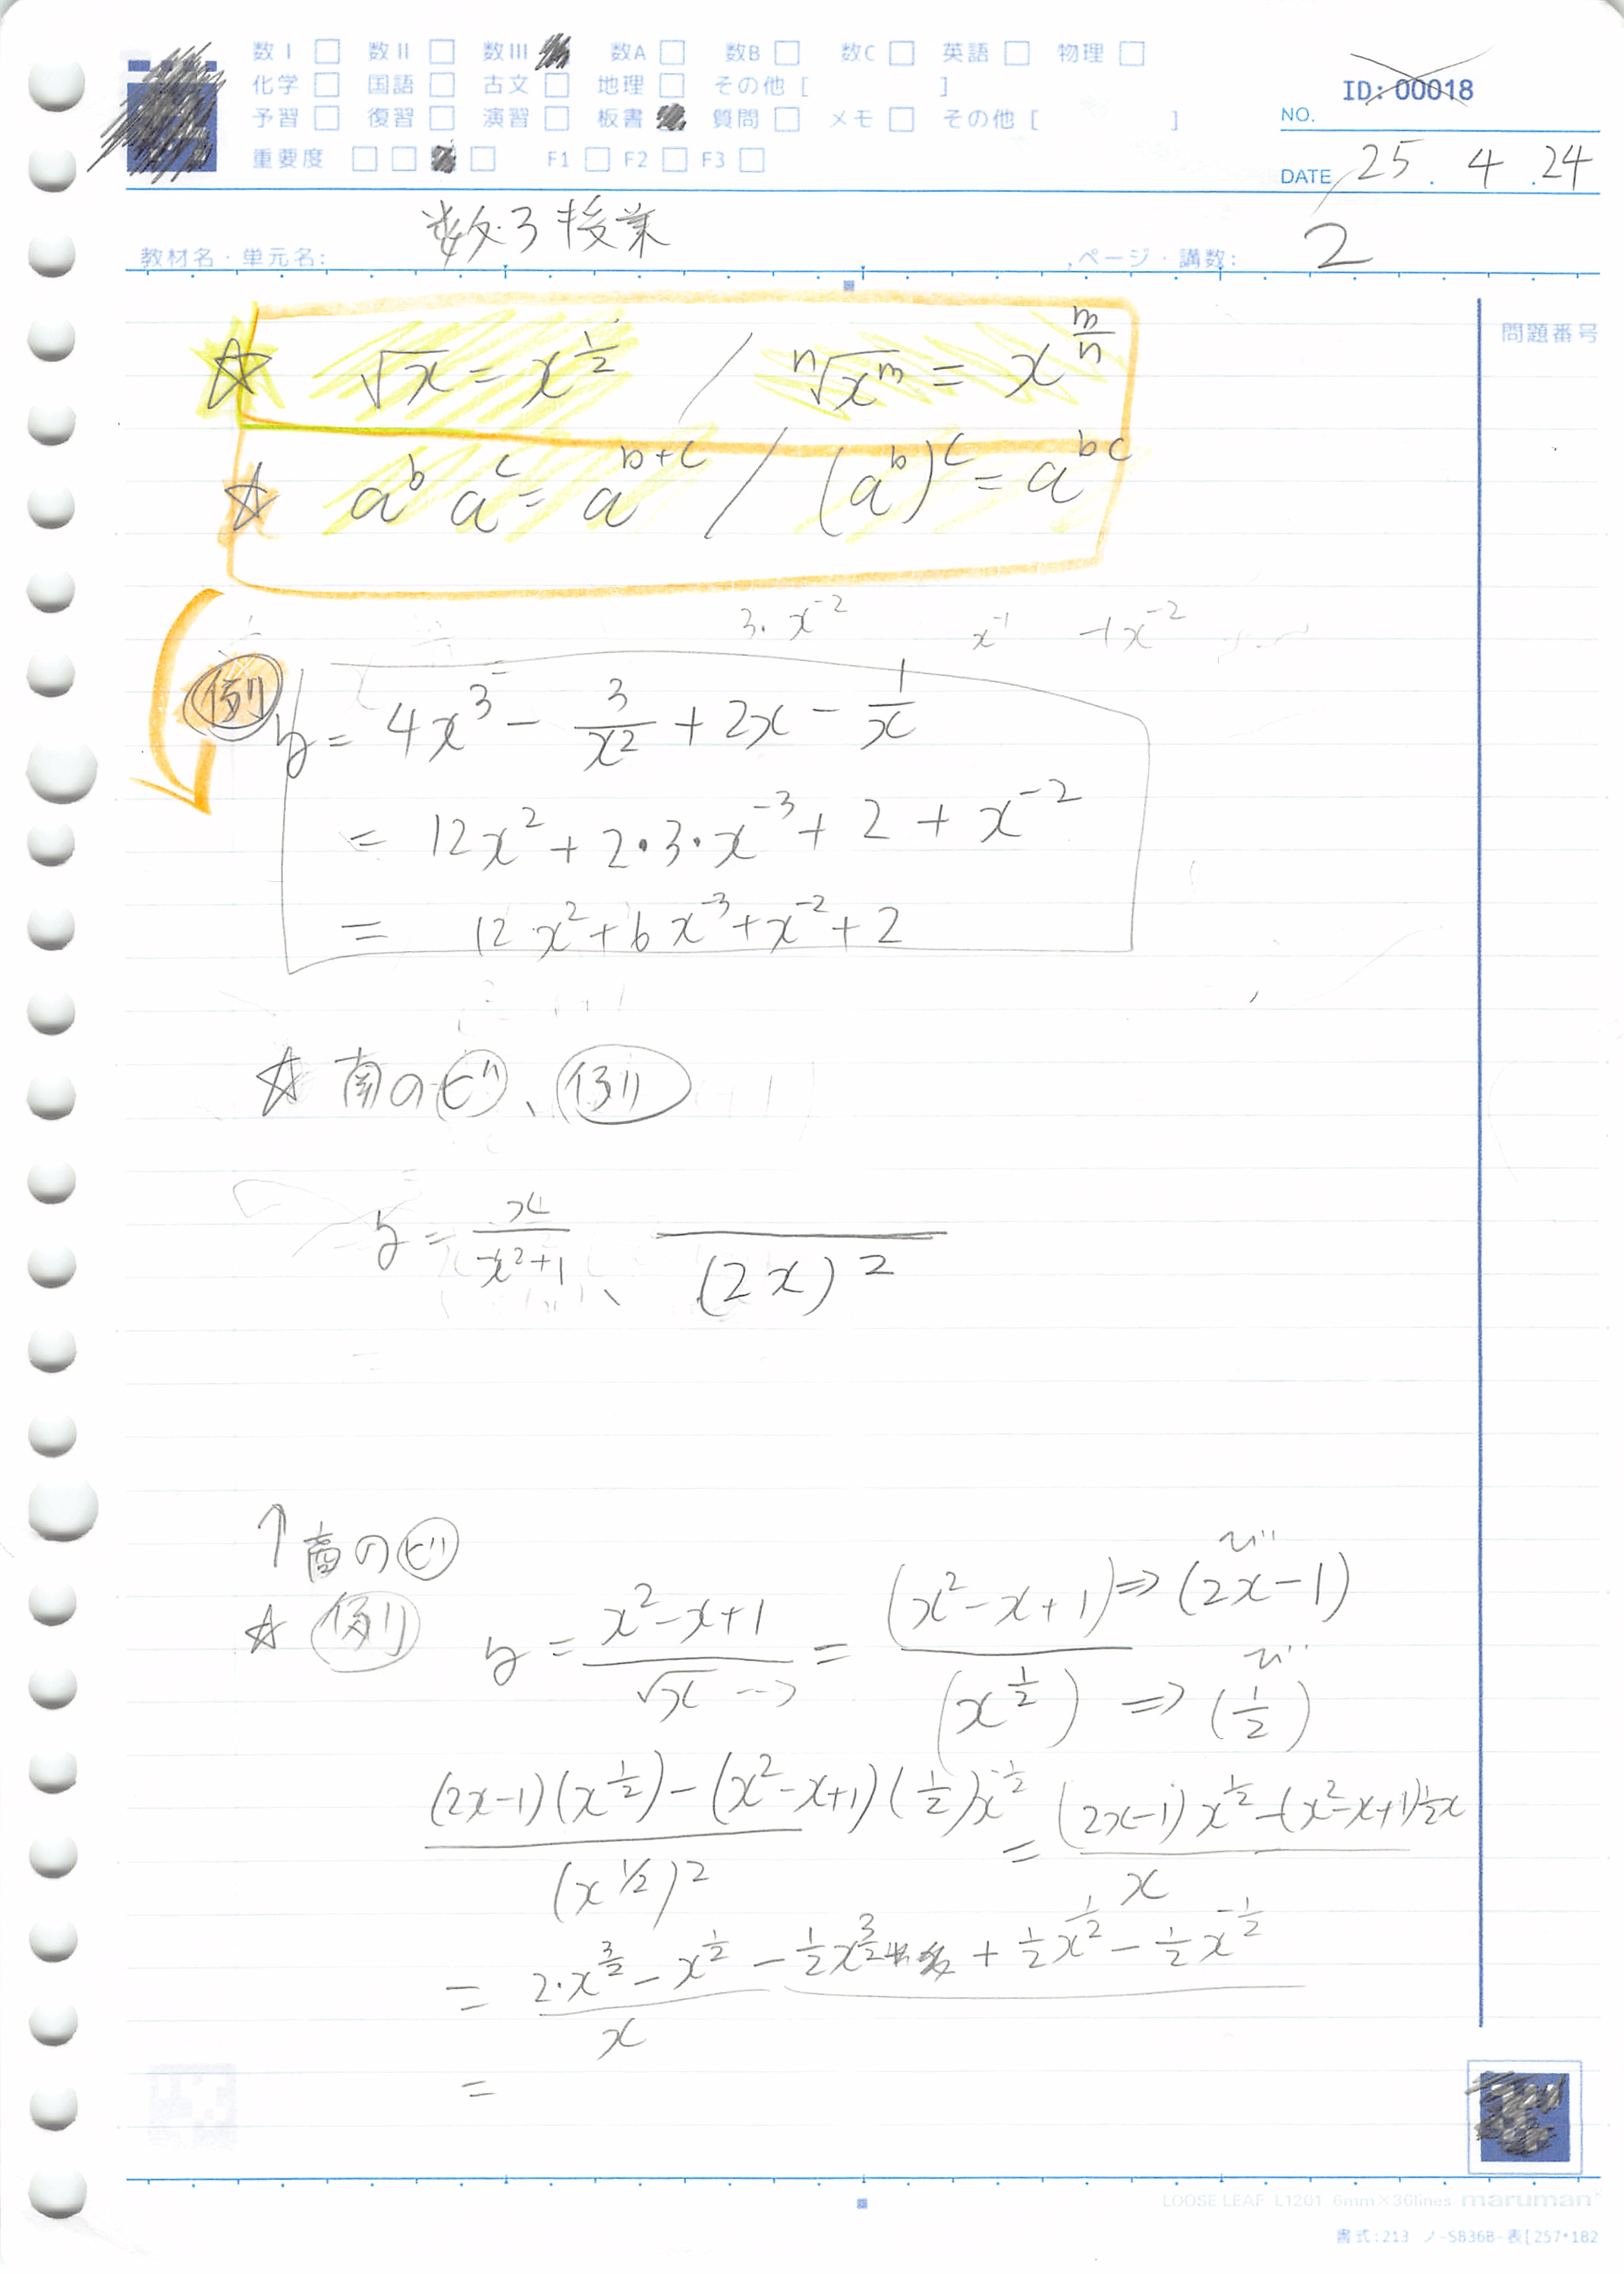 数I □ 数II □ 数III ■ 数A □ 数B □ 数C □ 英語 □ 物理 □
化学 □ 国語 □ 古文 □ 地理 □ その他 [ ]
予習 □ 復習 □ 演習 □ 板書 ■ 質問 □ メモ □ その他 [ ]
重要度 □ □ ■ □ F1 □ F2 □ F3 □
ID: 00018
NO.
DATE 25 . 4 . 24
教材名・単元名: 数3授業 ページ・講数: 2
問題番号
☆ √x = x^(1/2) / ⁿ√(x^m) = x^(m/n)
☆ a^b a^c = a^(b+c) / (a^b)^c = a^(bc)
3・x^-2 x^-1 -1x^-2
例 y = 4x^3 - 3/x^2 + 2x - 1/x
= 12x^2 + 2・3・x^-3 + 2 + x^-2
= 12x^2 + 6x^-3 + x^-2 + 2
☆ 商のビ、例
y = x/(x^2+1) /(2x)^2
↑ 商のビ
☆ 例 y = (x^2-x+1)/√x → = (x^2-x+1) ⇒ (2x-1) / (x^(1/2)) ⇒ (1/2)
((2x-1)(x^(1/2)) - (x^2-x+1)(1/2)x^(-1/2))/(x^(1/2))^2 = ((2x-1)x^(1/2) - (x^2-x+1)1/2x)/x
= (2・x^(3/2) - x^(1/2) - 1/2x^(3/2) + 1/2x^(1/2) - 1/2x^(-1/2))/x
=
LOOSE LEAF L1201 6mm×36lines maruman
書式:213 ノ-S836B-表[257*182